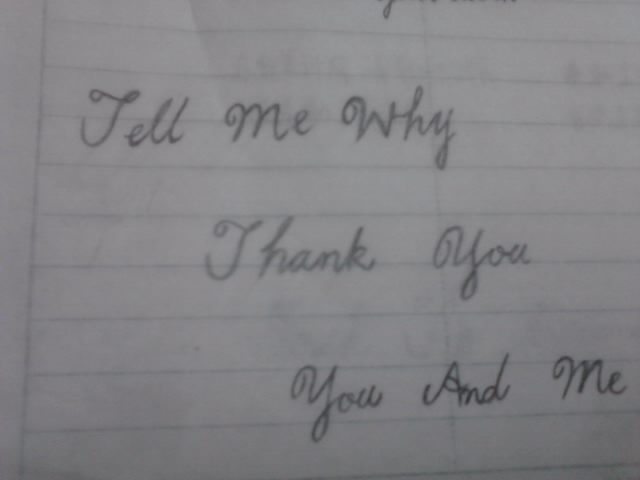 Tell Me Why
Thank You
You And Me